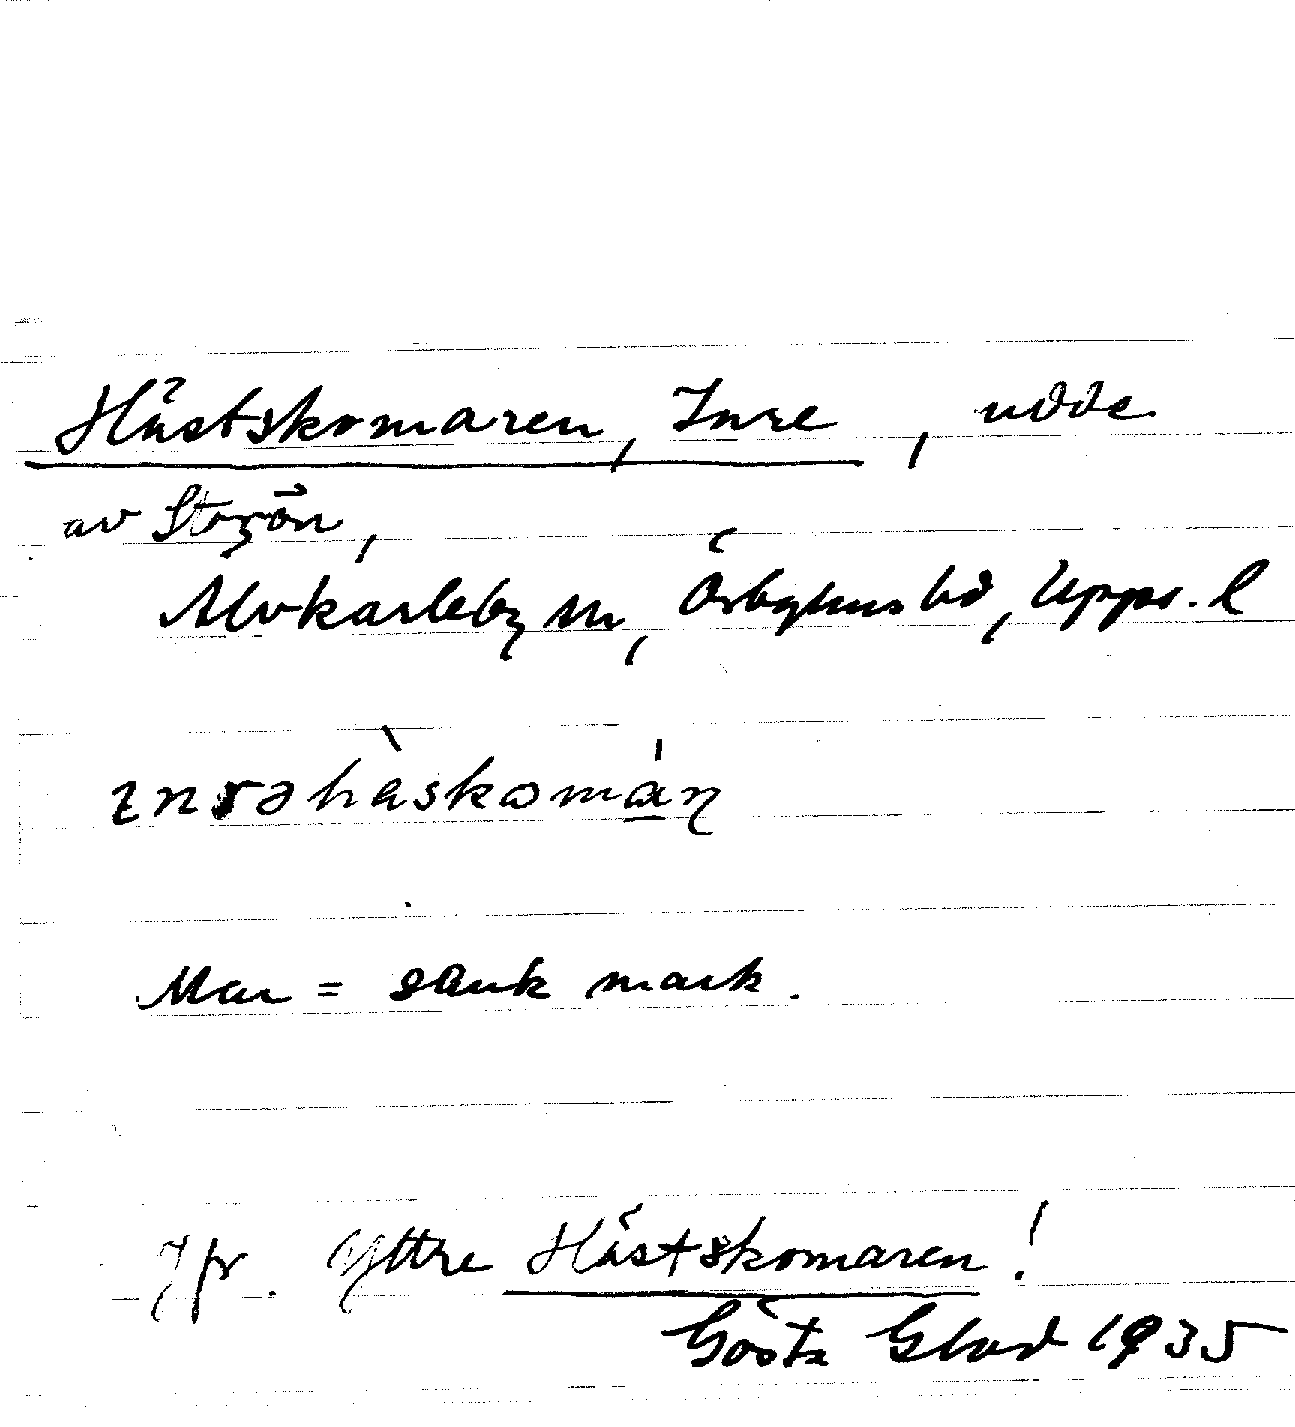 Hästskomaren, Inre, udde
av Storön,
Älvkarleby sn, Örbyhus hd, Upps. l
Mar = sank mark.
Jfr. Yttre Hästskomaren!
Gösta Glad 1935